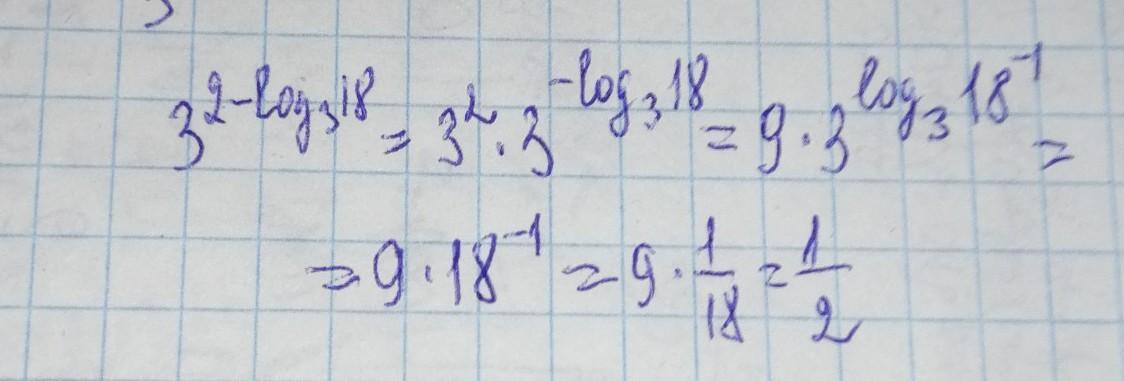 3^{2-log_3 18} = 3^2 · 3^{-log_3 18} = 9 · 3^{log_3 18^{-1}} =
= 9 · 18^{-1} = 9 · \frac{1}{18} = \frac{1}{2}